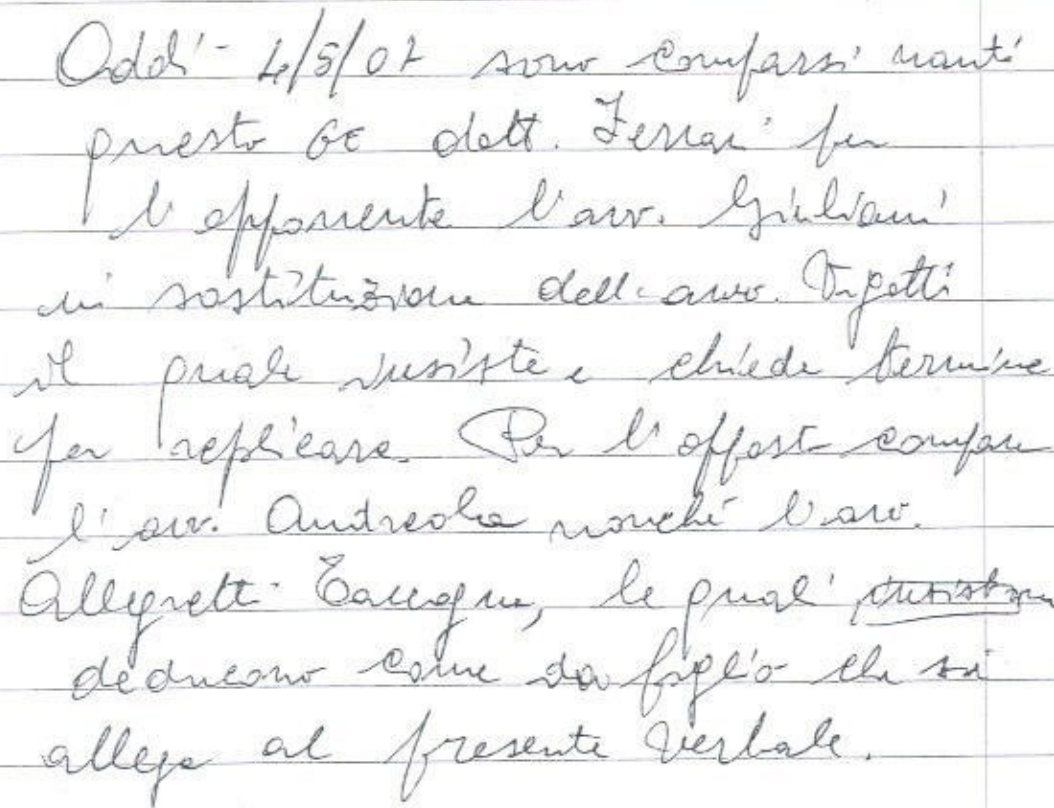 Addì 4/5/07 sono comparsi nanti
questo GE dott. Ferrari per
l'opponente l'avv. Giuliani
in sostituzione dell'avv.
il quale insiste e chiede termine
per replicare. Per l'opposta compare
l'avv. Andreola nonché l'avv.
Allegretti, le quali insistono
deducono come da foglio che si
allega al presente verbale.